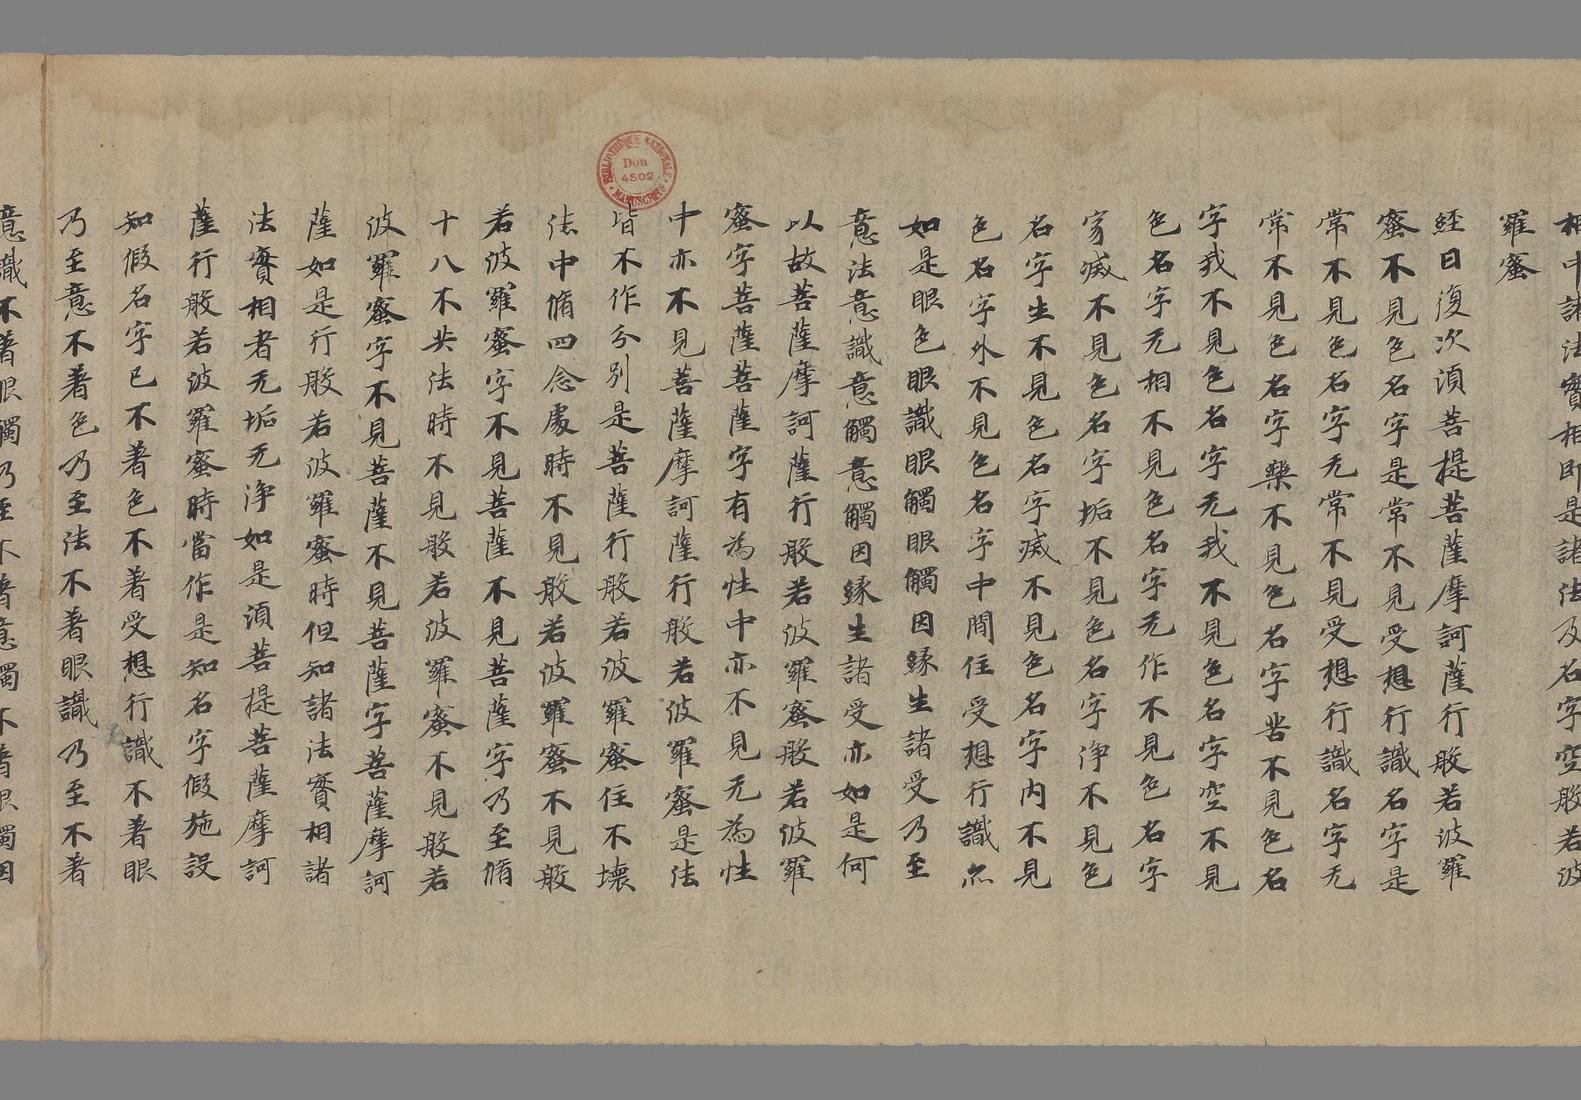 相中諸法實相即是諸法及名字空般若波
羅蜜
経曰復次湏菩提菩薩摩訶薩行般若波羅
蜜不見色名字是常不見受想行識名字是
常不見色名字无常不見受想行識名字无
常不見色名字樂不見色名字苦不見色名
字我不見色名字无我不見色名字空不見
色名字无相不見色名字无作不見色名字
寂滅不見色名字垢不見色名字淨不見色
名字生不見色名字滅不見色名字内不見
色名字外不見色名字中間住受想行識亦
如是眼色眼識眼觸眼觸因縁生諸受乃至
意法意識意觸意觸因縁生諸受亦如是何
以故菩薩摩訶薩行般若波羅蜜般若波羅
蜜字菩薩菩薩字有為性中亦不見无為性
中亦不見菩薩摩訶薩行般若波羅蜜是法
皆不作分別是菩薩行般若波羅蜜住不壞
法中脩四念處時不見般若波羅蜜不見般
若波羅蜜字不見菩薩不見菩薩字乃至脩
十八不共法時不見般若波羅蜜不見般若
波羅蜜字不見菩薩不見菩薩字菩薩摩訶
薩如是行般若波羅蜜時但知諸法實相諸
法實相者无垢无淨如是湏菩提菩薩摩訶
薩行般若波羅蜜時當作是知名字假施設
知假名字已不著色不著受想行識不著眼
乃至意不著色乃至法不著眼識乃至不著
意識不著眼觸乃至不著意觸不著眼觸因
BIBLIOTHÈQUE NATIONALE
Don
4502
MANUSCRITS